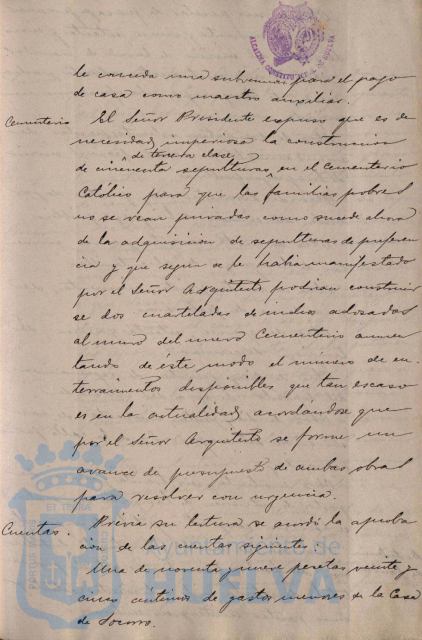 ALCALDIA CONSTITUCIONAL DE HUELVA
le conceda una subvencion para el pago
de casa como maestro auxiliar.
Cementerio
El Señor Presidente espuso que es de
necesidad imperiosa la construccion
de tercera clase
de cincuenta sepulturas en el Cementerio
Católico para que las familias pobres
no se vean privadas como sucede ahora
de la adquisicion de sepulturas de preferen
cia y que segun se le habia manifestado
por el Señor Arquitecto podrian construir
se dos cuarteladas de nichos adosados
al muro del nuevo Cementerio aumen
tando de este modo el número de en
terramientos disponibles que tan escaso
es en la actualidad, acordándose que
por el Señor Arquitecto se forme un
avance de presupuesto de ambas obras
para resolver con urgencia.
Cuentas.
Prévia su lectura se acordó la aproba
cion de las cuentas siguientes:
Una de noventa y nueve pesetas veinte y
cinco céntimos de gastos menores de la Casa
de Socorro.
Ayuntamiento de
HUELVA